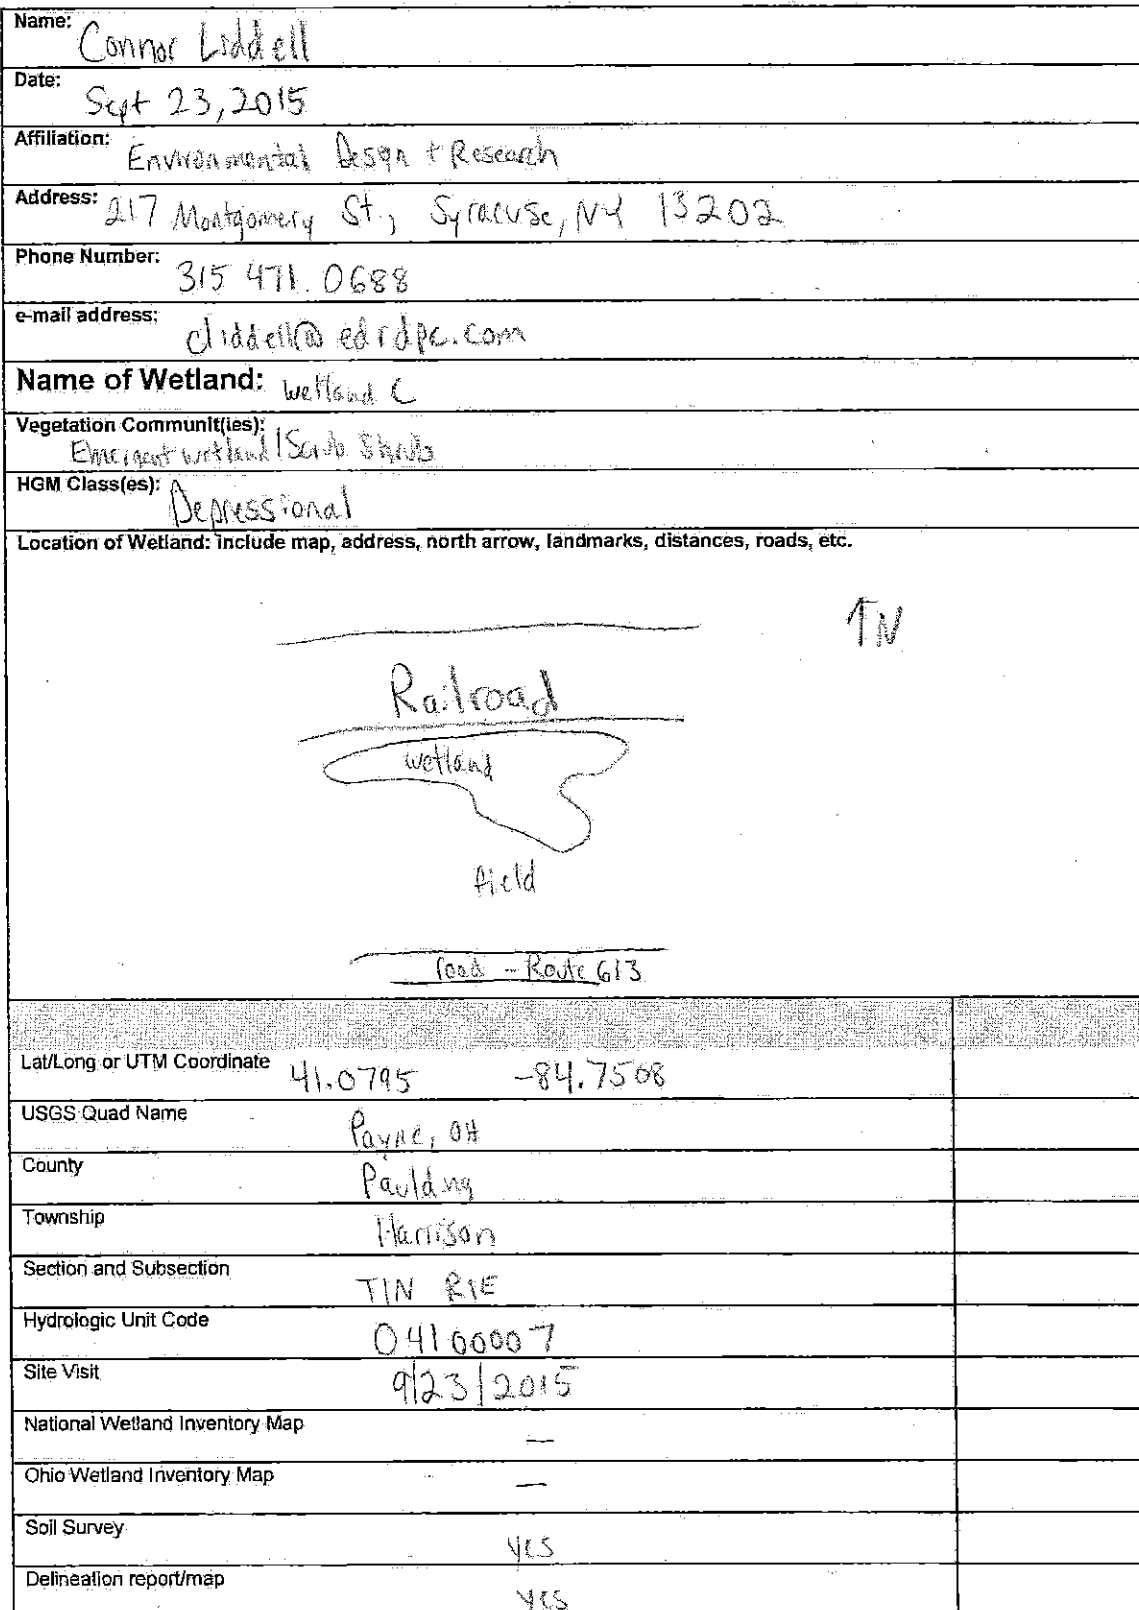 Name: Connor Liddell
Date: Sept 23, 2015
Affiliation: Environmental Design + Research
Address: 217 Montgomery St., Syracuse, NY 13202
Phone Number: 315 471.0688
e-mail address: cliddell@edrdpc.com
Name of Wetland: Wetland C
Vegetation Communit(ies): Emergent wetland / Scrub Shrub
HGM Class(es): Depressional
Location of Wetland: include map, address, north arrow, landmarks, distances, roads, etc.
↑N
Railroad
wetland
field
road - Route 613
Lat/Long or UTM Coordinate 41.0795 -84.7568
USGS Quad Name Payne, OH
County Paulding
Township Harrison
Section and Subsection T1N R1E
Hydrologic Unit Code 04100007
Site Visit 9/23/2015
National Wetland Inventory Map —
Ohio Wetland Inventory Map —
Soil Survey yes
Delineation report/map yes